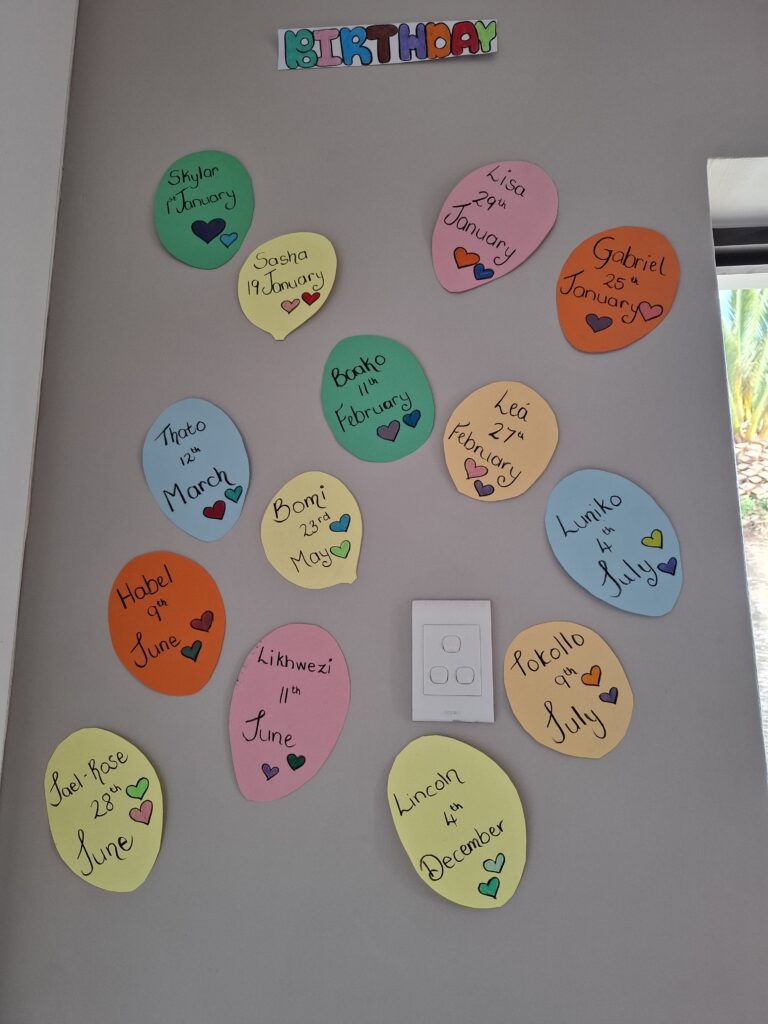 BIRTHDAY
Skylar
1st January
Lisa
29th
January
Sasha
19 January
Gabriel
25th
January
Baako
11th
February
Leá
27th
February
Thato
12th
March
Bomi
23rd
May
Luniko
4th
July
Habel
9th
June
Likhwezi
11th
June
Tokollo
9th
July
Jael-Rose
28th
June
Lincoln
4th
December